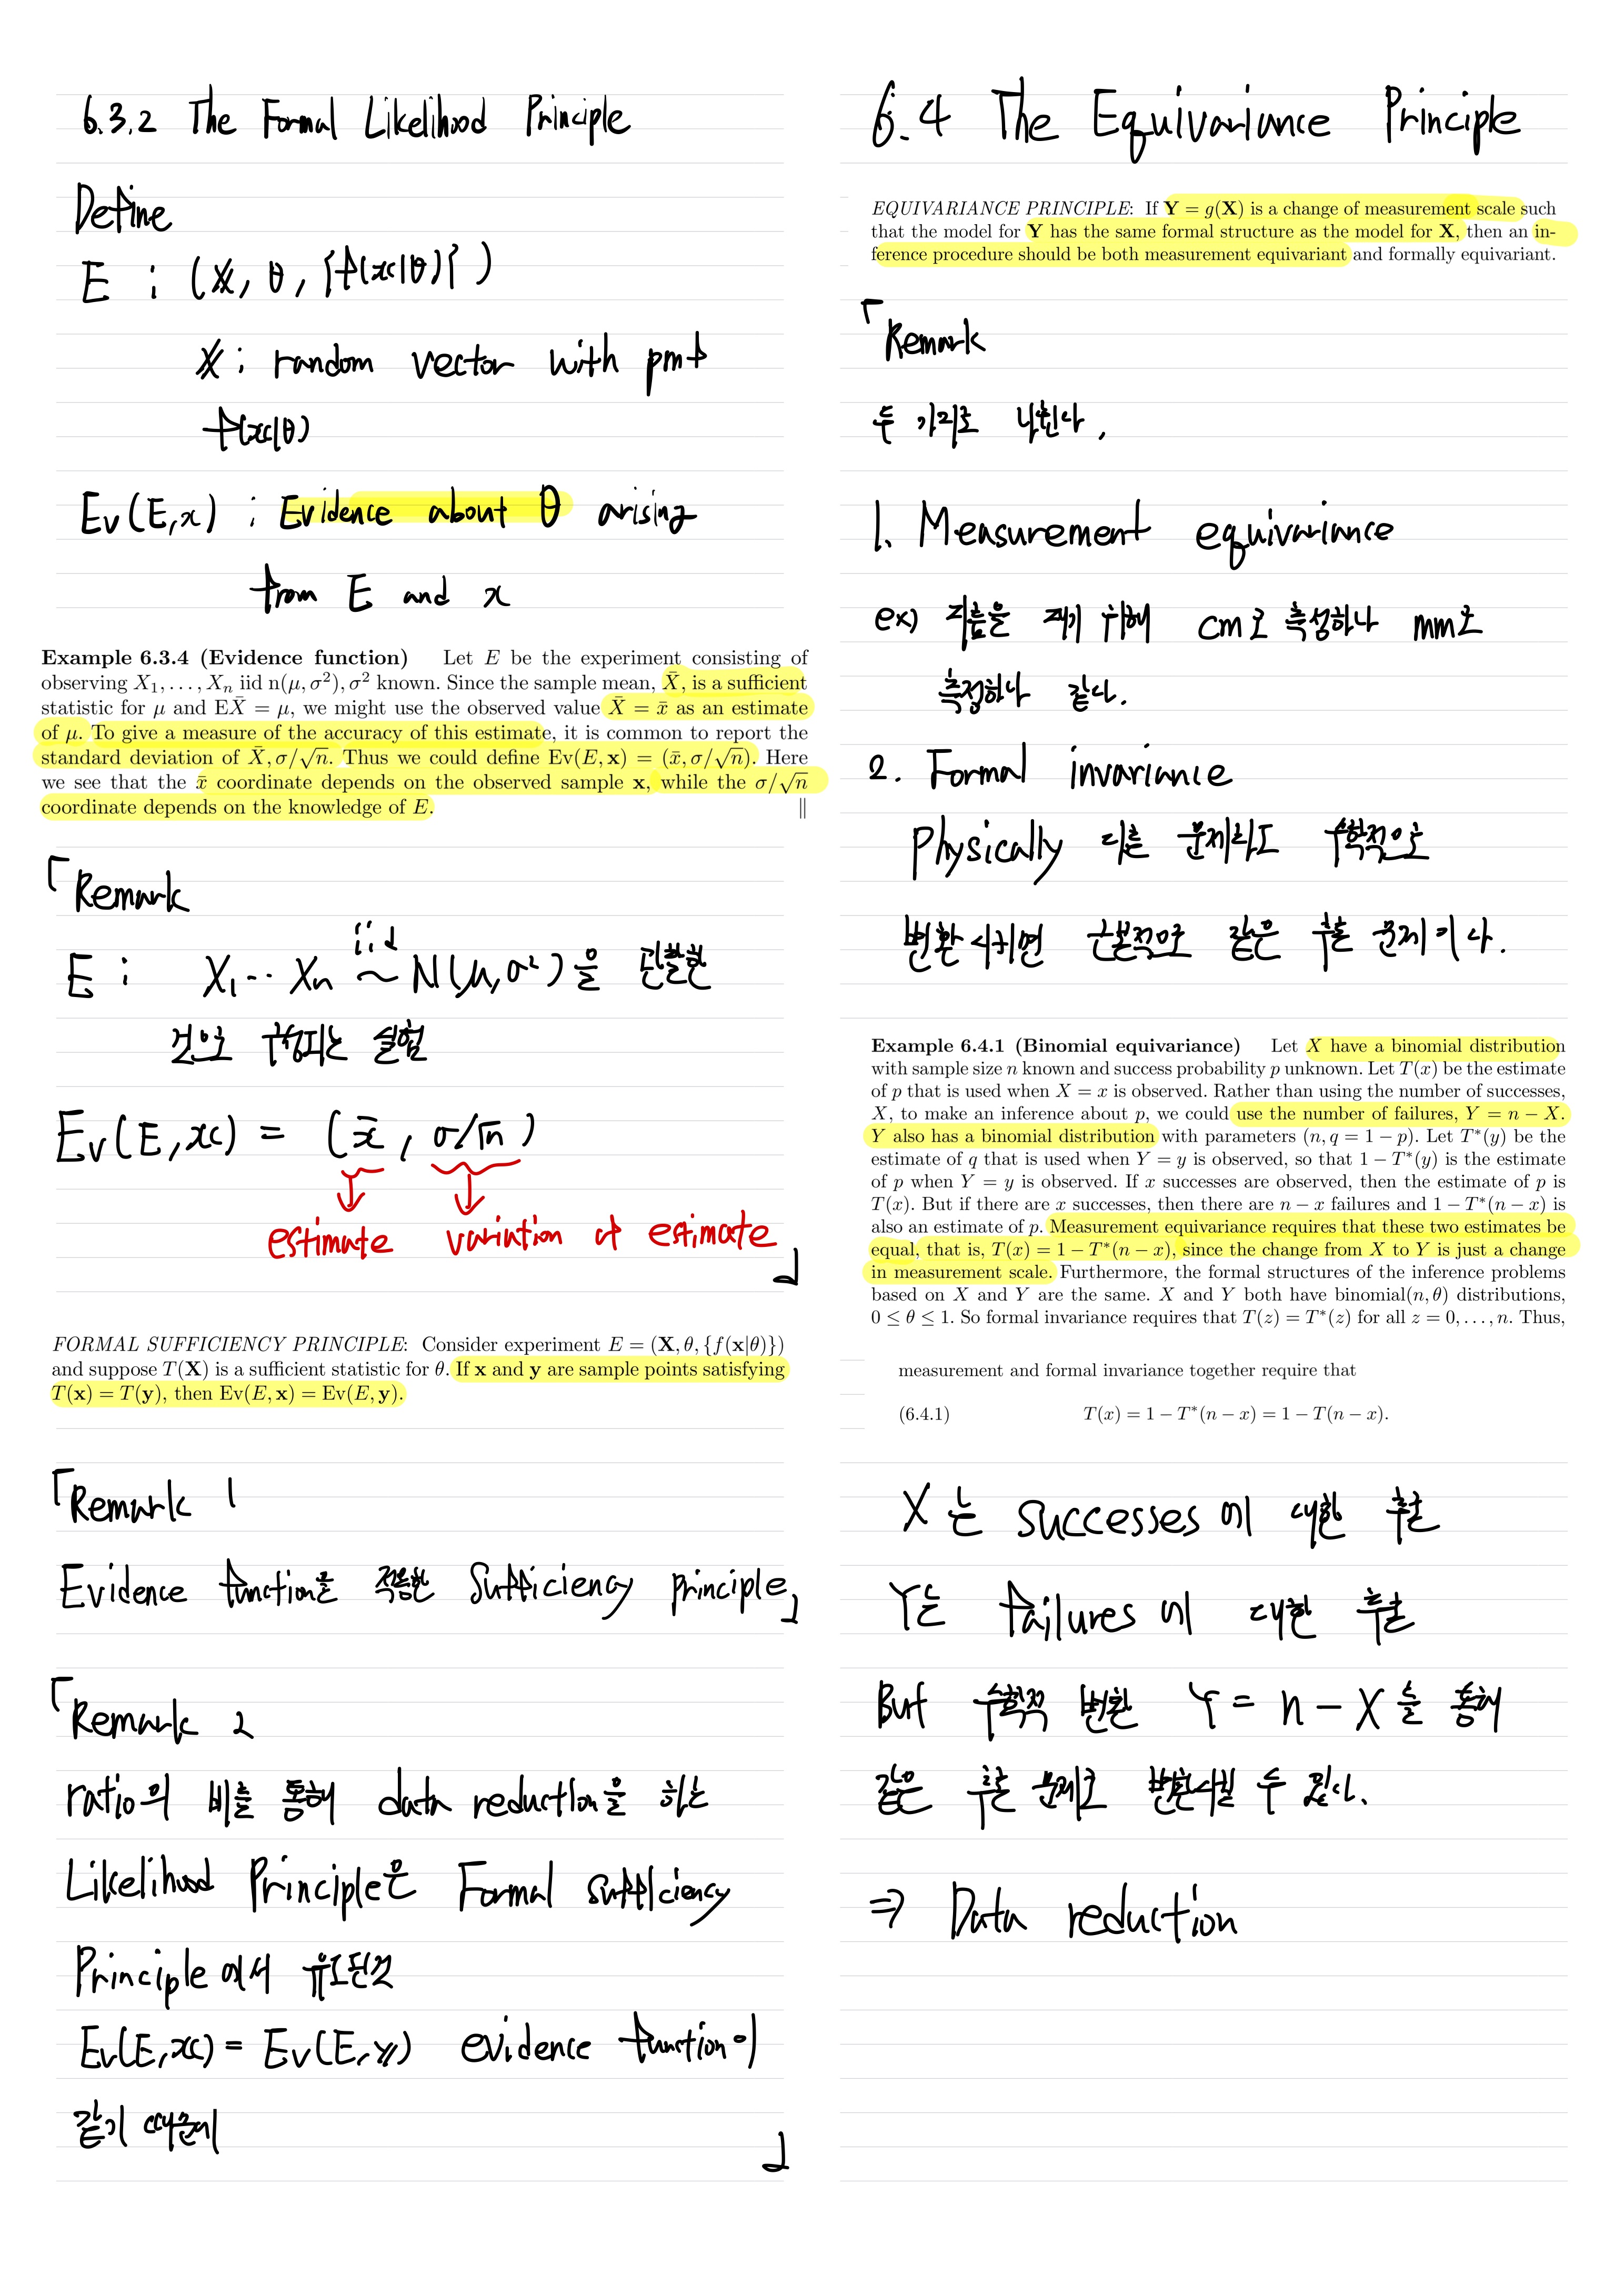 6.3.2 The Formal Likelihood Principle
Define
E : (X, θ, {f(x|θ)})
X : random vector with pmf
f(x|θ)
Ev(E,x) : Evidence about θ arising
from E and x
Example 6.3.4 (Evidence function) Let E be the experiment consisting of
observing X₁, . . . , Xₙ iid n(μ, σ²), σ² known. Since the sample mean, X̄, is a sufficient
statistic for μ and EX̄ = μ, we might use the observed value X̄ = x̄ as an estimate
of μ. To give a measure of the accuracy of this estimate, it is common to report the
standard deviation of X̄, σ/√n. Thus we could define Ev(E, x) = (x̄, σ/√n). Here
we see that the x̄ coordinate depends on the observed sample x, while the σ/√n
coordinate depends on the knowledge of E. ∥
「Remark
E : X₁ ·· Xₙ iid ~ N(μ, σ²)을 관찰한
것으로 구성되는 실험
Ev(E,x) = (x̄, σ/√n)
estimate variation of estimate
」
FORMAL SUFFICIENCY PRINCIPLE: Consider experiment E = (X, θ, {f(x|θ)})
and suppose T(X) is a sufficient statistic for θ. If x and y are sample points satisfying
T(x) = T(y), then Ev(E, x) = Ev(E, y).
「Remark 1
Evidence function을 적용한 Sufficiency principle」
「Remark 2
ratio의 비를 통해 data reduction을 하는
Likelihood Principle은 Formal sufficiency
Principle에서 유도된것
Ev(E,x) = Ev(E,y) evidence function이
같기 때문에
」
6.4 The Equivariance Principle
EQUIVARIANCE PRINCIPLE: If Y = g(X) is a change of measurement scale such
that the model for Y has the same formal structure as the model for X, then an in-
ference procedure should be both measurement equivariant and formally equivariant.
「Remark
두 가지로 나뉜다.
1. Measurement equivariance
ex) 지름을 재기 위해 cm로 측정하나 mm로
측정하나 같다.
2. Formal invariance
Physically 다른 문제라도 수학적으로
변환시키면 근본적으로 같은 추론 문제이다.
Example 6.4.1 (Binomial equivariance) Let X have a binomial distribution
with sample size n known and success probability p unknown. Let T(x) be the estimate
of p that is used when X = x is observed. Rather than using the number of successes,
X, to make an inference about p, we could use the number of failures, Y = n − X.
Y also has a binomial distribution with parameters (n, q = 1 − p). Let T*(y) be the
estimate of q that is used when Y = y is observed, so that 1 − T*(y) is the estimate
of p when Y = y is observed. If x successes are observed, then the estimate of p is
T(x). But if there are x successes, then there are n − x failures and 1 − T*(n − x) is
also an estimate of p. Measurement equivariance requires that these two estimates be
equal, that is, T(x) = 1 − T*(n − x), since the change from X to Y is just a change
in measurement scale. Furthermore, the formal structures of the inference problems
based on X and Y are the same. X and Y both have binomial(n, θ) distributions,
0 ≤ θ ≤ 1. So formal invariance requires that T(z) = T*(z) for all z = 0, . . . , n. Thus,
measurement and formal invariance together require that
(6.4.1) T(x) = 1 − T*(n − x) = 1 − T(n − x).
X는 successes에 대한 추론
Y는 failures에 대한 추론
But 수학적 변환 Y = n − X를 통해
같은 추론 문제로 변환시킬 수 있다.
⇒ Data reduction